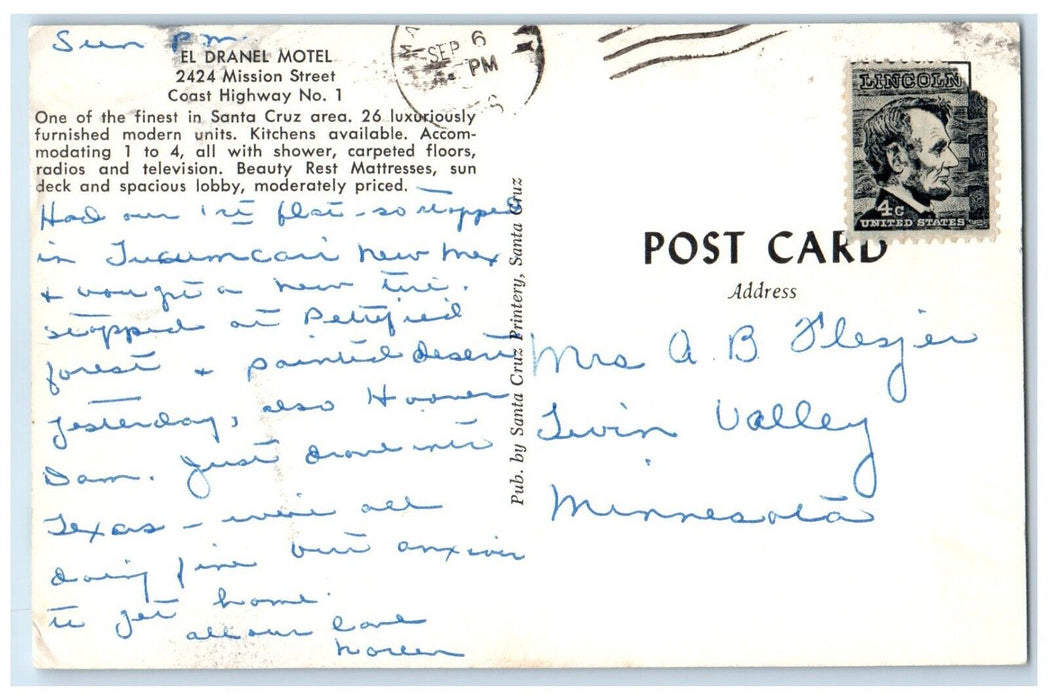 Sun P.M.
EL DRANEL MOTEL
2424 Mission Street
Coast Highway No. 1
One of the finest in Santa Cruz area. 26 luxuriously
furnished modern units. Kitchens available. Accom-
modating 1 to 4, all with shower, carpeted floors,
radios and television. Beauty Rest Mattresses, sun
deck and spacious lobby, moderately priced.
Had our 1st flat - so stopped
in Tucumcari New Mex
+ bought a new tire.
stopped at Petrified
forest + painted desert
yesterday, also Hoover
Dam. Just drove into
Texas - we're all
doing fine but anxious
to get home.
all our love
Noreen
Pub. by Santa Cruz Printery, Santa Cruz
SEP 6
PM
LINCOLN
4c
UNITED STATES
POST CARD
Address
Mrs A. B. Flesjer
Twin Valley
Minnesota